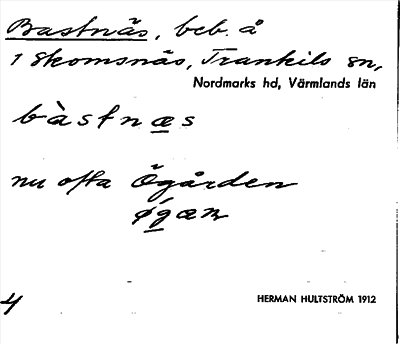 Bastnäs, beb. å
1 Skomsnäs, Trankils sn,
Nordmarks hd, Värmlands län
bàstnæs
nu ofta Ögården
øgæɳ
4
HERMAN HULTSTRÖM 1912